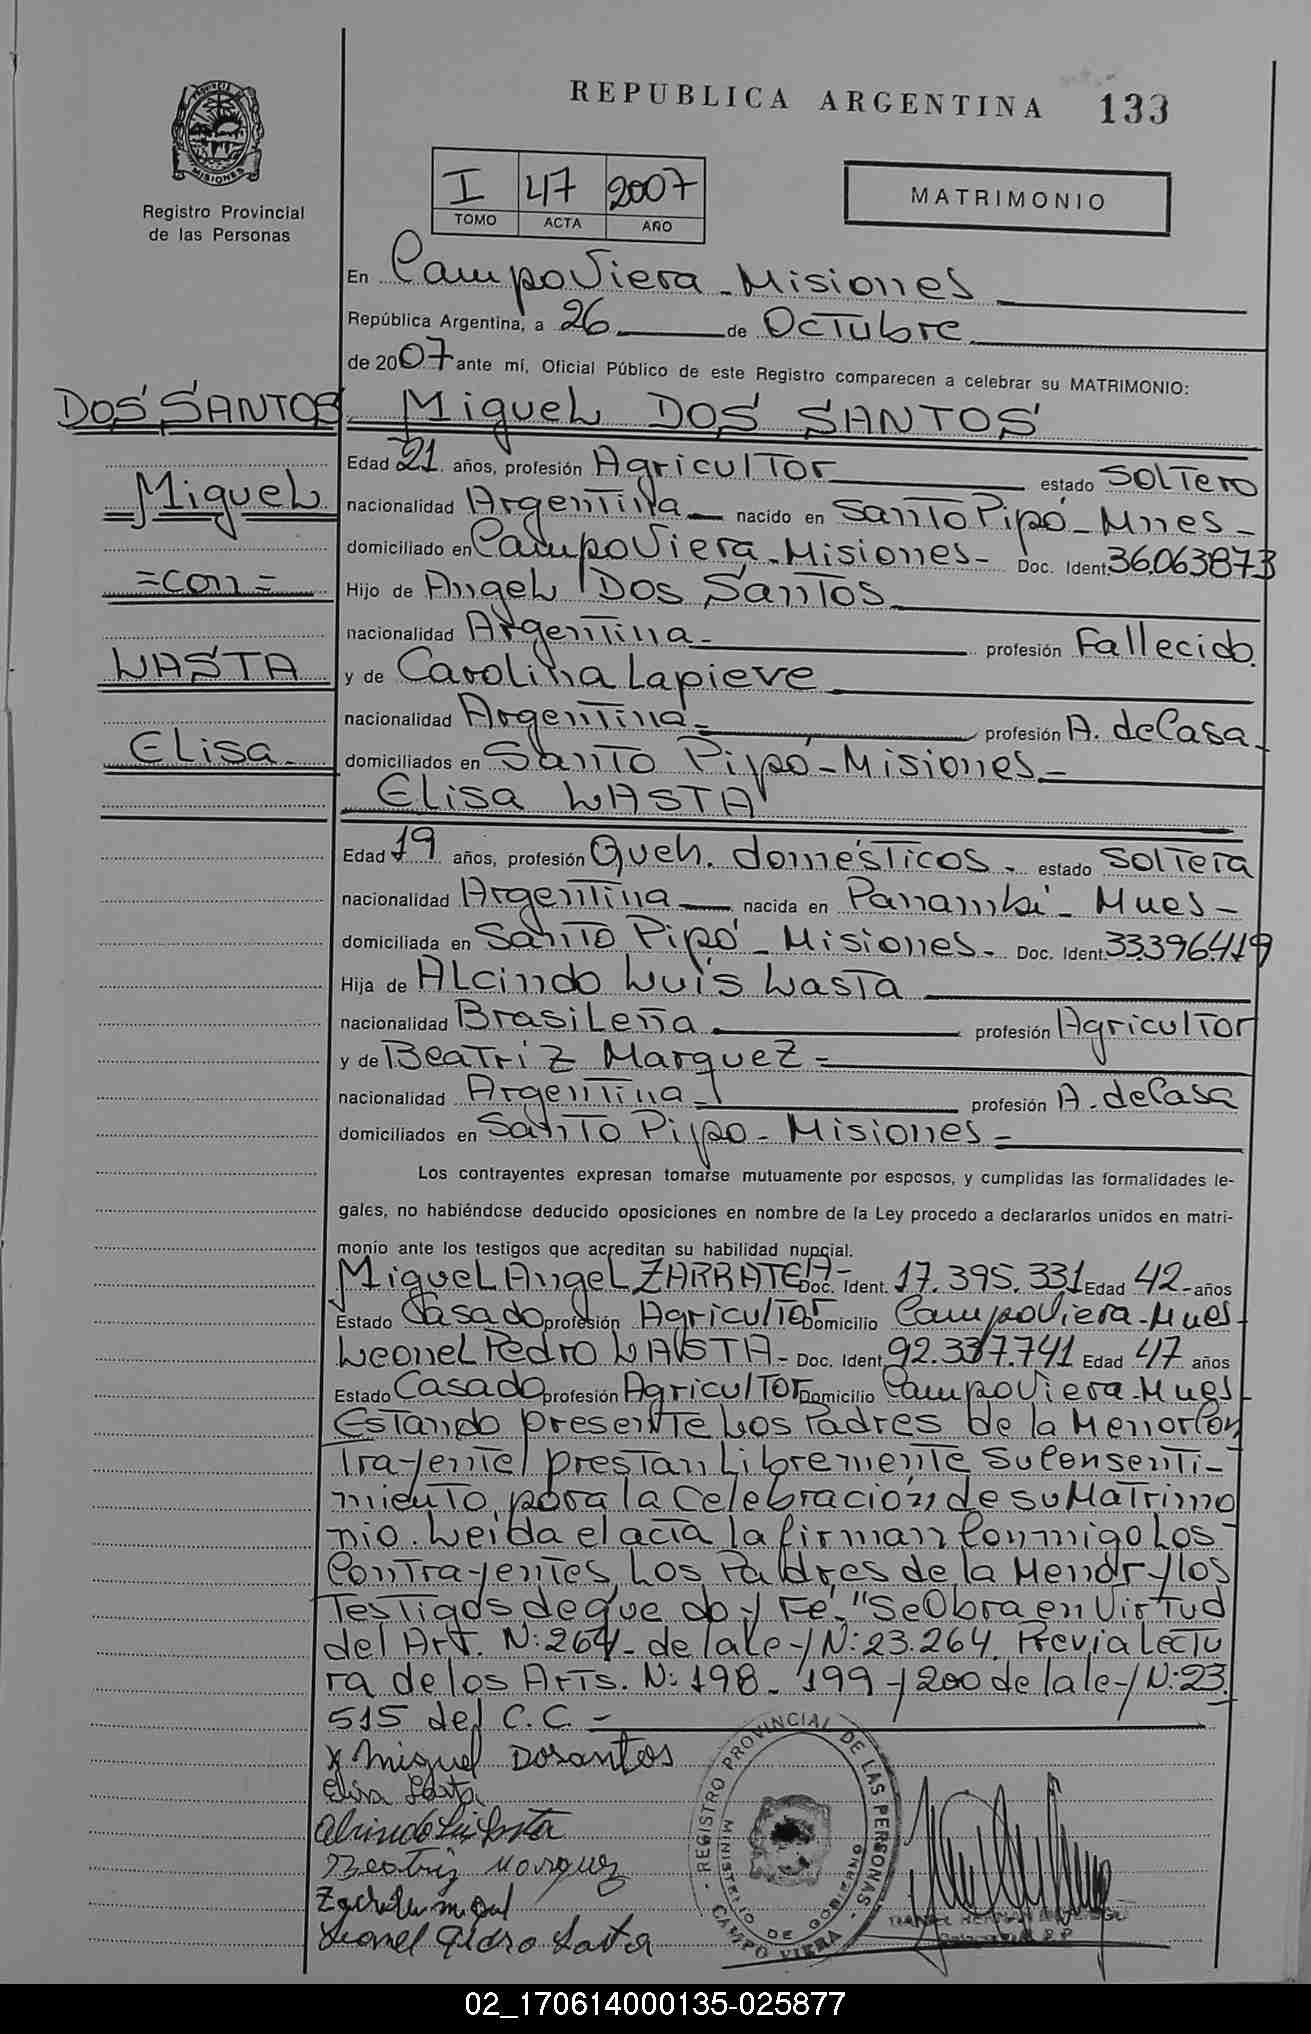 REPUBLICA ARGENTINA 133
Registro Provincial
de las Personas
I 47 2007
TOMO ACTA AÑO
MATRIMONIO
En Campo Viera - Misiones
República Argentina, a 26 de Octubre
de 2007 ante mí, Oficial Público de este Registro comparecen a celebrar su MATRIMONIO:
DOS SANTOS
Miguel
=con=
LASTA
Elisa
Miguel DOS SANTOS
Edad 21 años, profesión Agricultor estado Soltero
nacionalidad Argentina nacido en Santo Pipó - Mnes -
domiciliado en Campo Viera - Misiones - Doc. Ident. 36.063873
Hijo de Angel Dos Santos
nacionalidad Argentina - profesión Fallecido.
y de Carolina Lapieve
nacionalidad Argentina - profesión A. de Casa -
domiciliados en Santo Pipó - Misiones -
Elisa LASTA
Edad 19 años, profesión Queh. domésticos - estado Soltera
nacionalidad Argentina nacida en Panambí - Mnes -
domiciliada en Santo Pipó - Misiones - Doc. Ident. 33.396.419
Hija de Alcindo Luis Lasta
nacionalidad Brasileña profesión Agricultor
y de Beatriz Marquez =
nacionalidad Argentina - profesión A. de Casa
domiciliados en Santo Pipo - Misiones =
Los contrayentes expresan tomarse mutuamente por esposos, y cumplidas las formalidades le-
gales, no habiéndose deducido oposiciones en nombre de la Ley procedo a declararlos unidos en matri-
monio ante los testigos que acreditan su habilidad nupcial.
Miguel Angel ZARRATEA - Doc. Ident. 17.395.331 Edad 42 - años
Estado Casado profesión Agricultor Domicilio Campo Viera - Mnes -
Leonel Pedro LASTA - Doc. Ident. 92.337.741 Edad 47 años
Estado Casado profesión Agricultor Domicilio Campo Viera - Mnes -
Estando presente Los Padres de la Menor Con
trayente, prestan Libremente Su Consenti-
miento para la Celebración de su Matrimo
nio. Leída el acta la firman Conmigo Los
Contrayentes, Los Padres de la Menor y los
Testigos de que doy Fé. "Se Obra en Virtud
del Art. N: 264 - de la Ley N: 23.264. Previa Lectu
ra de los Arts. N: 198 - 199 y 200 de la Ley N: 23.
515 del C.C. =
x Miguel Dosantos
Elisa Lasta
Alcindo Luis Lasta
Beatriz Marquez
Zarratea Miguel
Leonel Pedro Lasta
REGISTRO PROVINCIAL DE LAS PERSONAS
MINISTERIO DE GOBIERNO
CAMPO VIERA
02_170614000135-025877